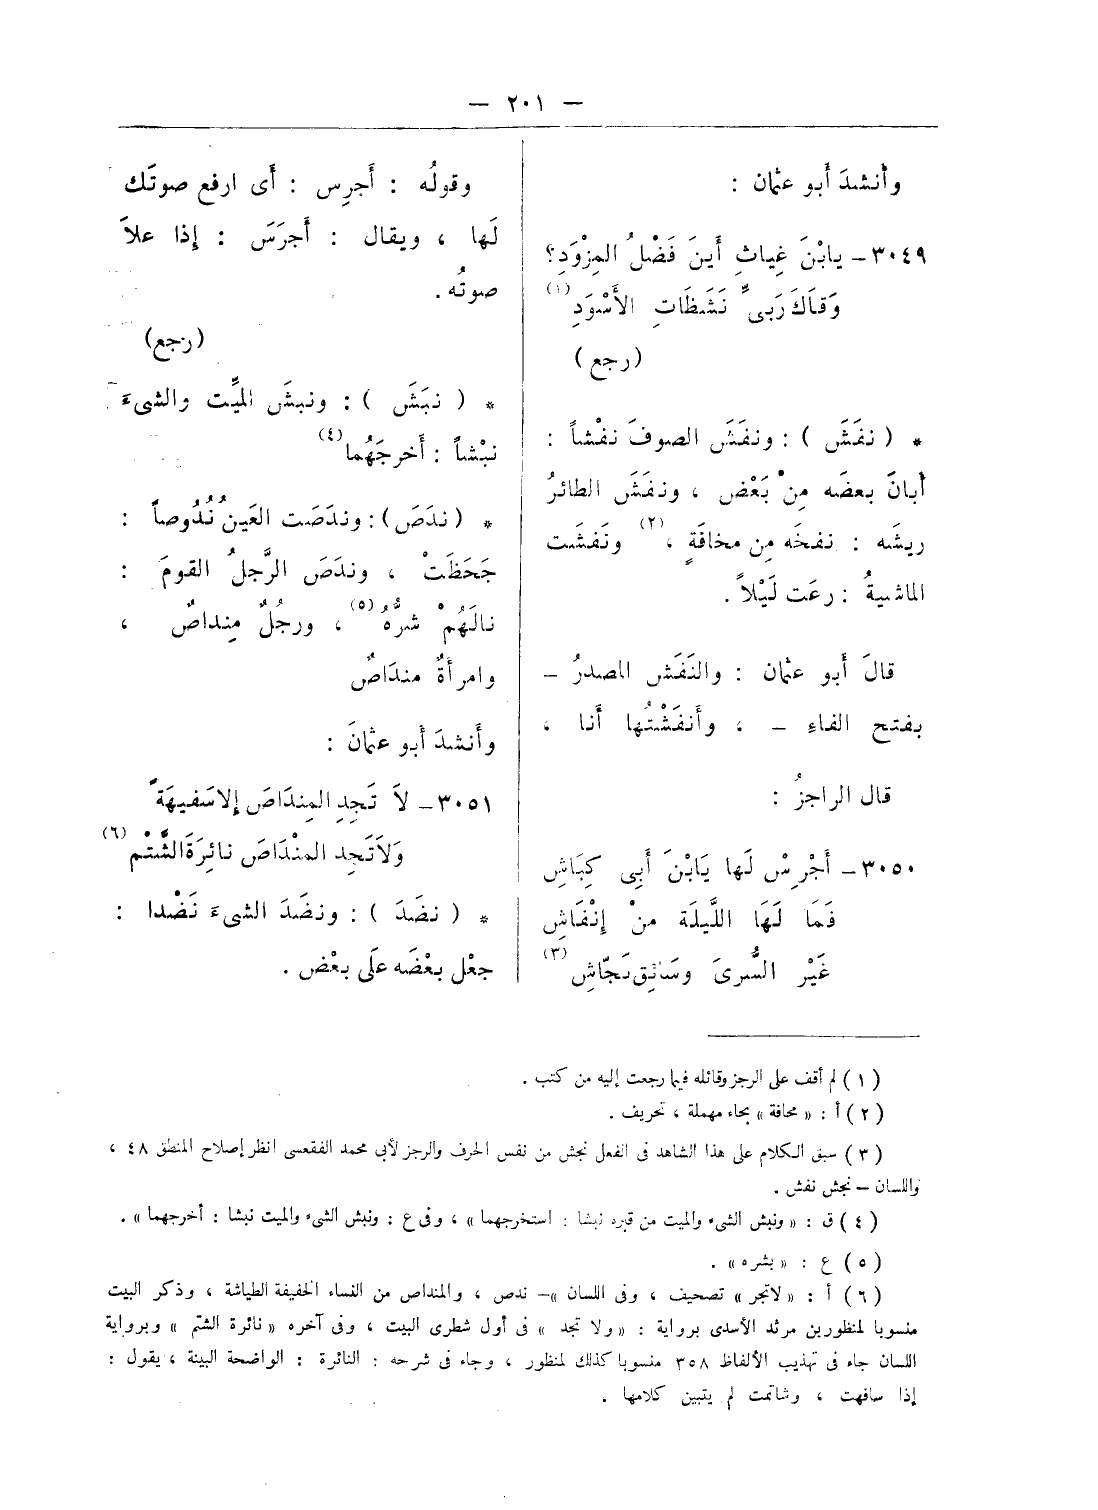 — ٢٠١ —
وأنشدَ أبو عثمان :
٣٠٤٩ – يابْنَ غِياثِ أَينَ فَضْلُ المِزْوَدِ؟
وَقَاكَ رَبىِّ نَشَظَاتِ الأَسْوَدِ (١)
( رجع )
* ( نفَشَ ) : ونفَشَ الصوفَ نفْشاً :
أبانَ بعضَه مِنْ بَعْض ، ونفَشَ الطائرُ
ريشَه : نفخَه مِن مخافَةٍ (٢) ، ونَفشَت
الماشيةُ : رعَت لَيْلاً .
قالَ أبو عثمان : والنَفَش المصدرُ –
بفتح الفاءِ – ، وأَنفَشْتُها أَنا ،
قال الراجزُ :
٣٠٥٠ – أَجْرِسْ لَها يَابْنَ أَبِى كِبَاشِ
فَمَا لَهَا اللَّيلَة منْ إِنْفَاشِ
غَيْر السُّرىَ وسَائِق نَجّاشِ (٣)
وقولُه : أَجرِس : أَى ارفع صوتَك
لَها ، ويقال : أَجرَسَ : إِذا علاَ
صوتُه .
(رجع)
* ( نبَشَ ) : ونبشَ الميِّت والشىءَ
نبْشاً : أَخرجَهُما (٤)
* (ندَصَ) : وندَصَت العَينُ نُدُوصاً :
جَحَظَتْ ، وندَصَ الرَّجلُ القومَ :
نالَهُمْ شرُّهُ (٥) ، ورجُلٌ مِنداصٌ ،
وامرأةٌ مندَاصٌ
وأَنشدَ أبو عثمانَ :
٣٠٥١ – لاَ تَجدِ المِندَاصَ إِلا سَفيهَةً
وَلاَتَجِد المنْدَاصَ نائِرَةَ الشَّتْم (٦)
* ( نضَدَ ) : ونضَدَ الشىءَ نَضْدا :
جعْل بعْضَه عَلَى بعْض .
( ١ ) لم أقف على الرجز وقائله فيما رجعت إليه من كتب .
( ٢ ) أ : « محافة » بحاء مهملة ، تحريف .
( ٣ ) سبق الكلام على هذا الشاهد فى الفعل نجش من نفس الحرف والرجز لأبى محمد الفقعسى انظر إصلاح المنطق ٤٨ ،
واللسان – نجش نفش .
( ٤ ) ق : « ونبش الشىء والميت من قبره نبشا : استخرجهما » ، وفى ع : ونبش الشىء والميت نبشا : أخرجهما » .
( ٥ ) ع : « بشره » .
( ٦ ) أ : « لاتجر » تصحيف ، وفى اللسان »– ندص ، والمنداص من النساء الخفيفة الطياشة ، وذكر البيت
منسوبا لمنظوربن مرثد الأسدى برواية : « ولا تجد » فى أول شطرى البيت ، وفى آخره « نائرة الشتم » وبرواية
اللسان جاء فى تهذيب الألفاظ ٣٥٨ منسوبا كذلك لمنظور ، وجاء فى شرحه : النائرة : الواضحة البينة ، يقول :
إذا سافهت ، وشاتمت لم يتبين كلامها .